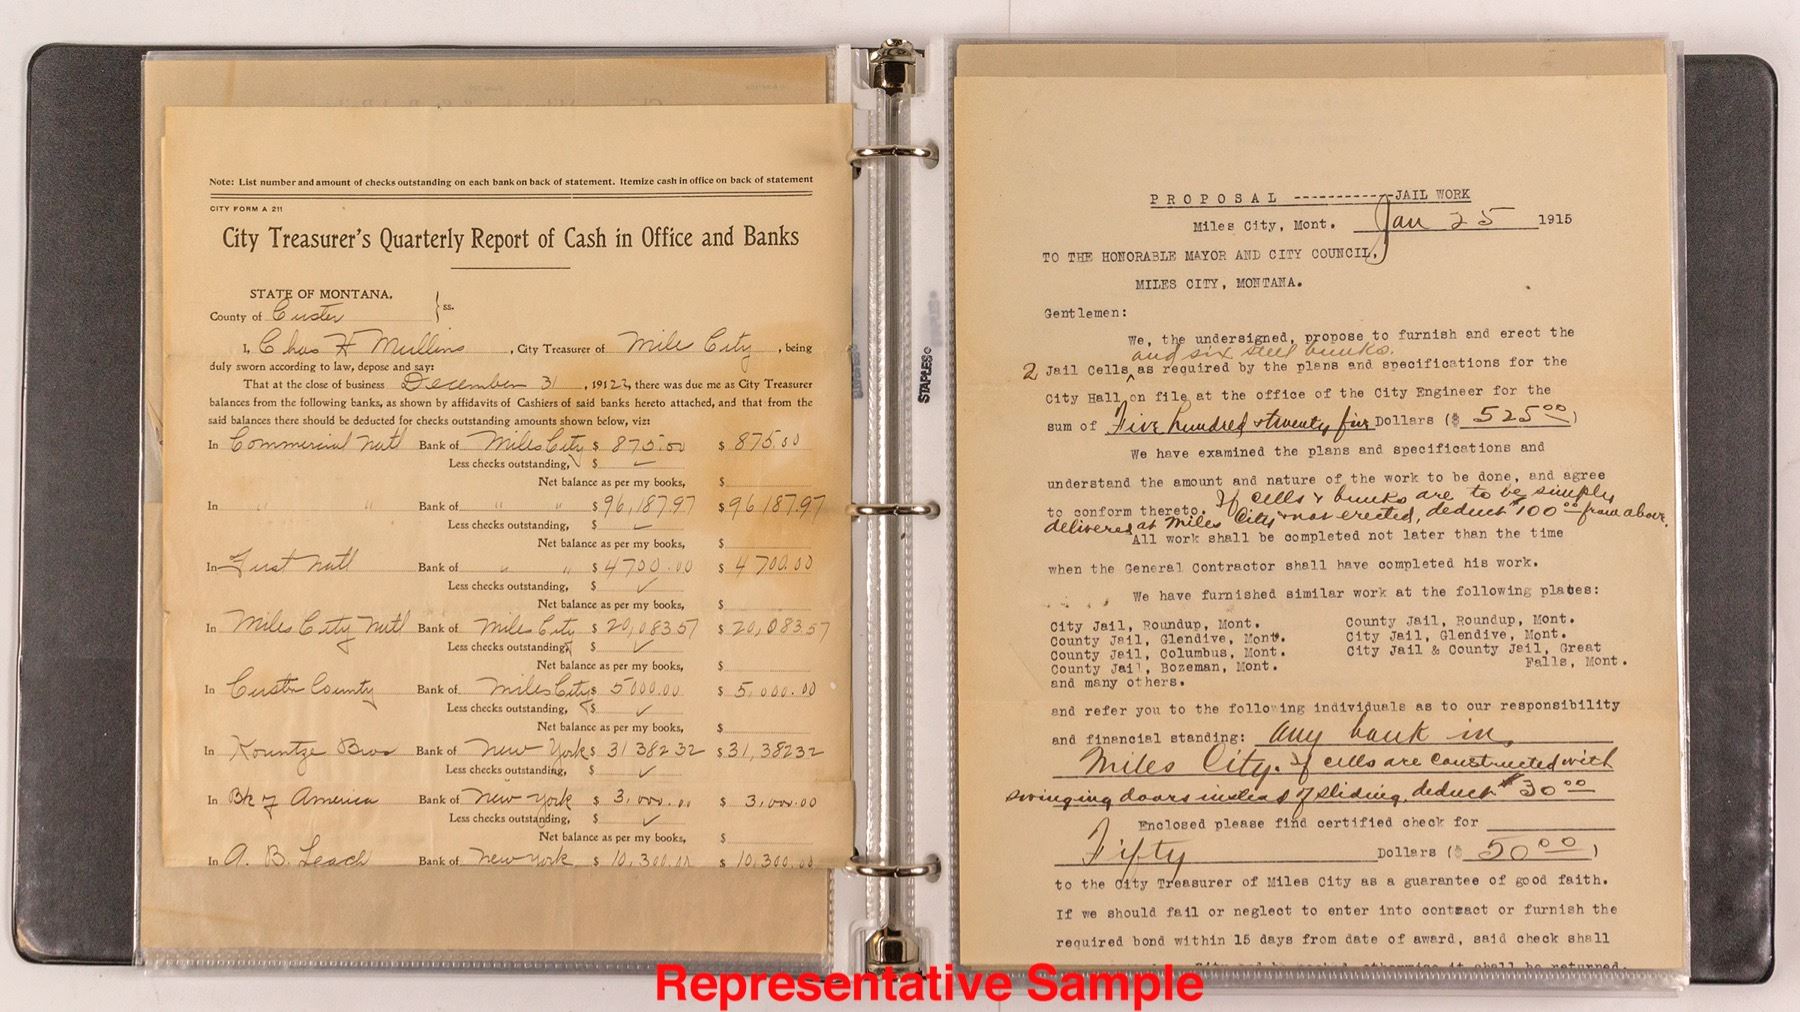 Note: List number and amount of checks outstanding on each bank on back of statement. Itemize cash in office on back of statement
CITY FORM A 211
City Treasurer's Quarterly Report of Cash in Office and Banks
STATE OF MONTANA,
County of Custer } ss.
I, Chas H Mullins, City Treasurer of Mile City, being
duly sworn according to law, depose and say:
That at the close of business December 31, 191 there was due me as City Treasurer
balances from the following banks, as shown by affidavits of Cashiers of said banks hereto attached, and that from the
said balances there should be deducted for checks outstanding amounts shown below, viz:
In Commercial Natl Bank of Miles City $ 875.00 $ 875.00
Less checks outstanding, $ ✓
Net balance as per my books, $
In " " Bank of " " $ 96,187.97 $ 96 187.97
Less checks outstanding, $ ✓
Net balance as per my books, $
In First Natl Bank of " " $ 4700.00 $ 4700.00
Less checks outstanding, $ ✓
Net balance as per my books, $
In Miles City Natl Bank of Miles City $ 20,083.57 $ 20,083.57
Less checks outstanding, $ ✓
Net balance as per my books, $
In Custer County Bank of Miles City $ 5000.00 $ 5,000.00
Less checks outstanding, $ ✓
Net balance as per my books, $
In Kountze Bros Bank of New York $ 31 382 32 $ 31,382 32
Less checks outstanding, $ ✓
Net balance as per my books, $
In Bk of America Bank of New York $ 3,000.00 $ 3,000.00
Less checks outstanding, $ ✓
Net balance as per my books, $
In A. B. Leach Bank of New York $ 10,300.00 $ 10,300.00
STAPLES
PROPOSAL ----------JAIL WORK
Miles City, Mont. Jan 25 1915
TO THE HONORABLE MAYOR AND CITY COUNCIL,
MILES CITY, MONTANA.
Gentlemen:
We, the undersigned, propose to furnish and erect the
and six steel bunks.
2 Jail Cells ^ as required by the plans and specifications for the
City Hall on file at the office of the City Engineer for the
sum of Five hundred & twenty five Dollars ($ 525 00)
We have examined the plans and specifications and
understand the amount and nature of the work to be done, and agree
to conform thereto. If cells & bunks are to be simply
delivered at Miles City & not erected, deduct $100 00 from above.
All work shall be completed not later than the time
when the General Contractor shall have completed his work.
We have furnished similar work at the following plates:
City Jail, Roundup, Mont. County Jail, Roundup, Mont.
County Jail, Glendive, Mont. City Jail, Glendive, Mont.
County Jail, Columbus, Mont. City Jail & County Jail, Great
County Jail, Bozeman, Mont. Falls, Mont.
and many others.
and refer you to the following individuals as to our responsibility
and financial standing: any bank in
Miles City. If cells are constructed with
swinging doors instead of sliding, deduct $30 00
Enclosed please find certified check for
Fifty Dollars ($ 50 00)
to the City Treasurer of Miles City as a guarantee of good faith.
If we should fail or neglect to enter into contract or furnish the
required bond within 15 days from date of award, said check shall
City otherwise it shall be returned.
Representative Sample